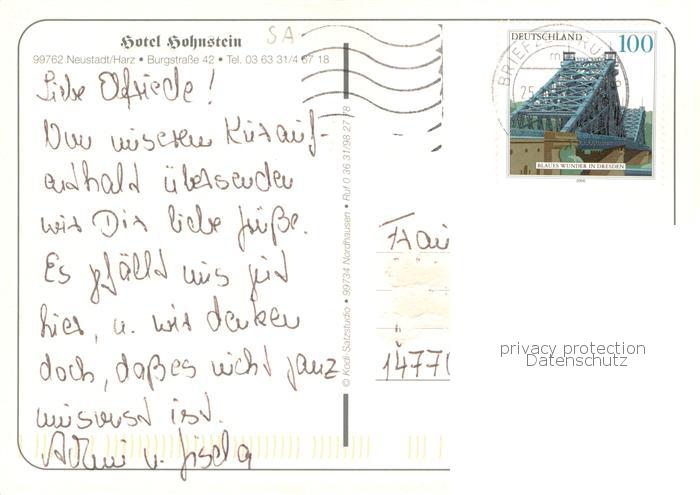 Hotel Hohnstein
99762 Neustadt/Harz • Burgstraße 42 • Tel. 03 63 31/4 67 18
SA
Liebe Elfriede!
Von unserem Kurauf-
enthalt übersenden
wir Dir liebe Grüße.
Es gefällt uns gut
hier, u. wir denken
doch, daß es nicht ganz
umsonst ist.
u. Gisela
© Kodi-Satzstudio • 99734 Nordhausen • Ruf 0 36 31/98 27 78
DEUTSCHLAND 100
BLAUES WUNDER IN DRESDEN
2000
BRIEFZENTRUM
25
Frau
14771
privacy protection
Datenschutz